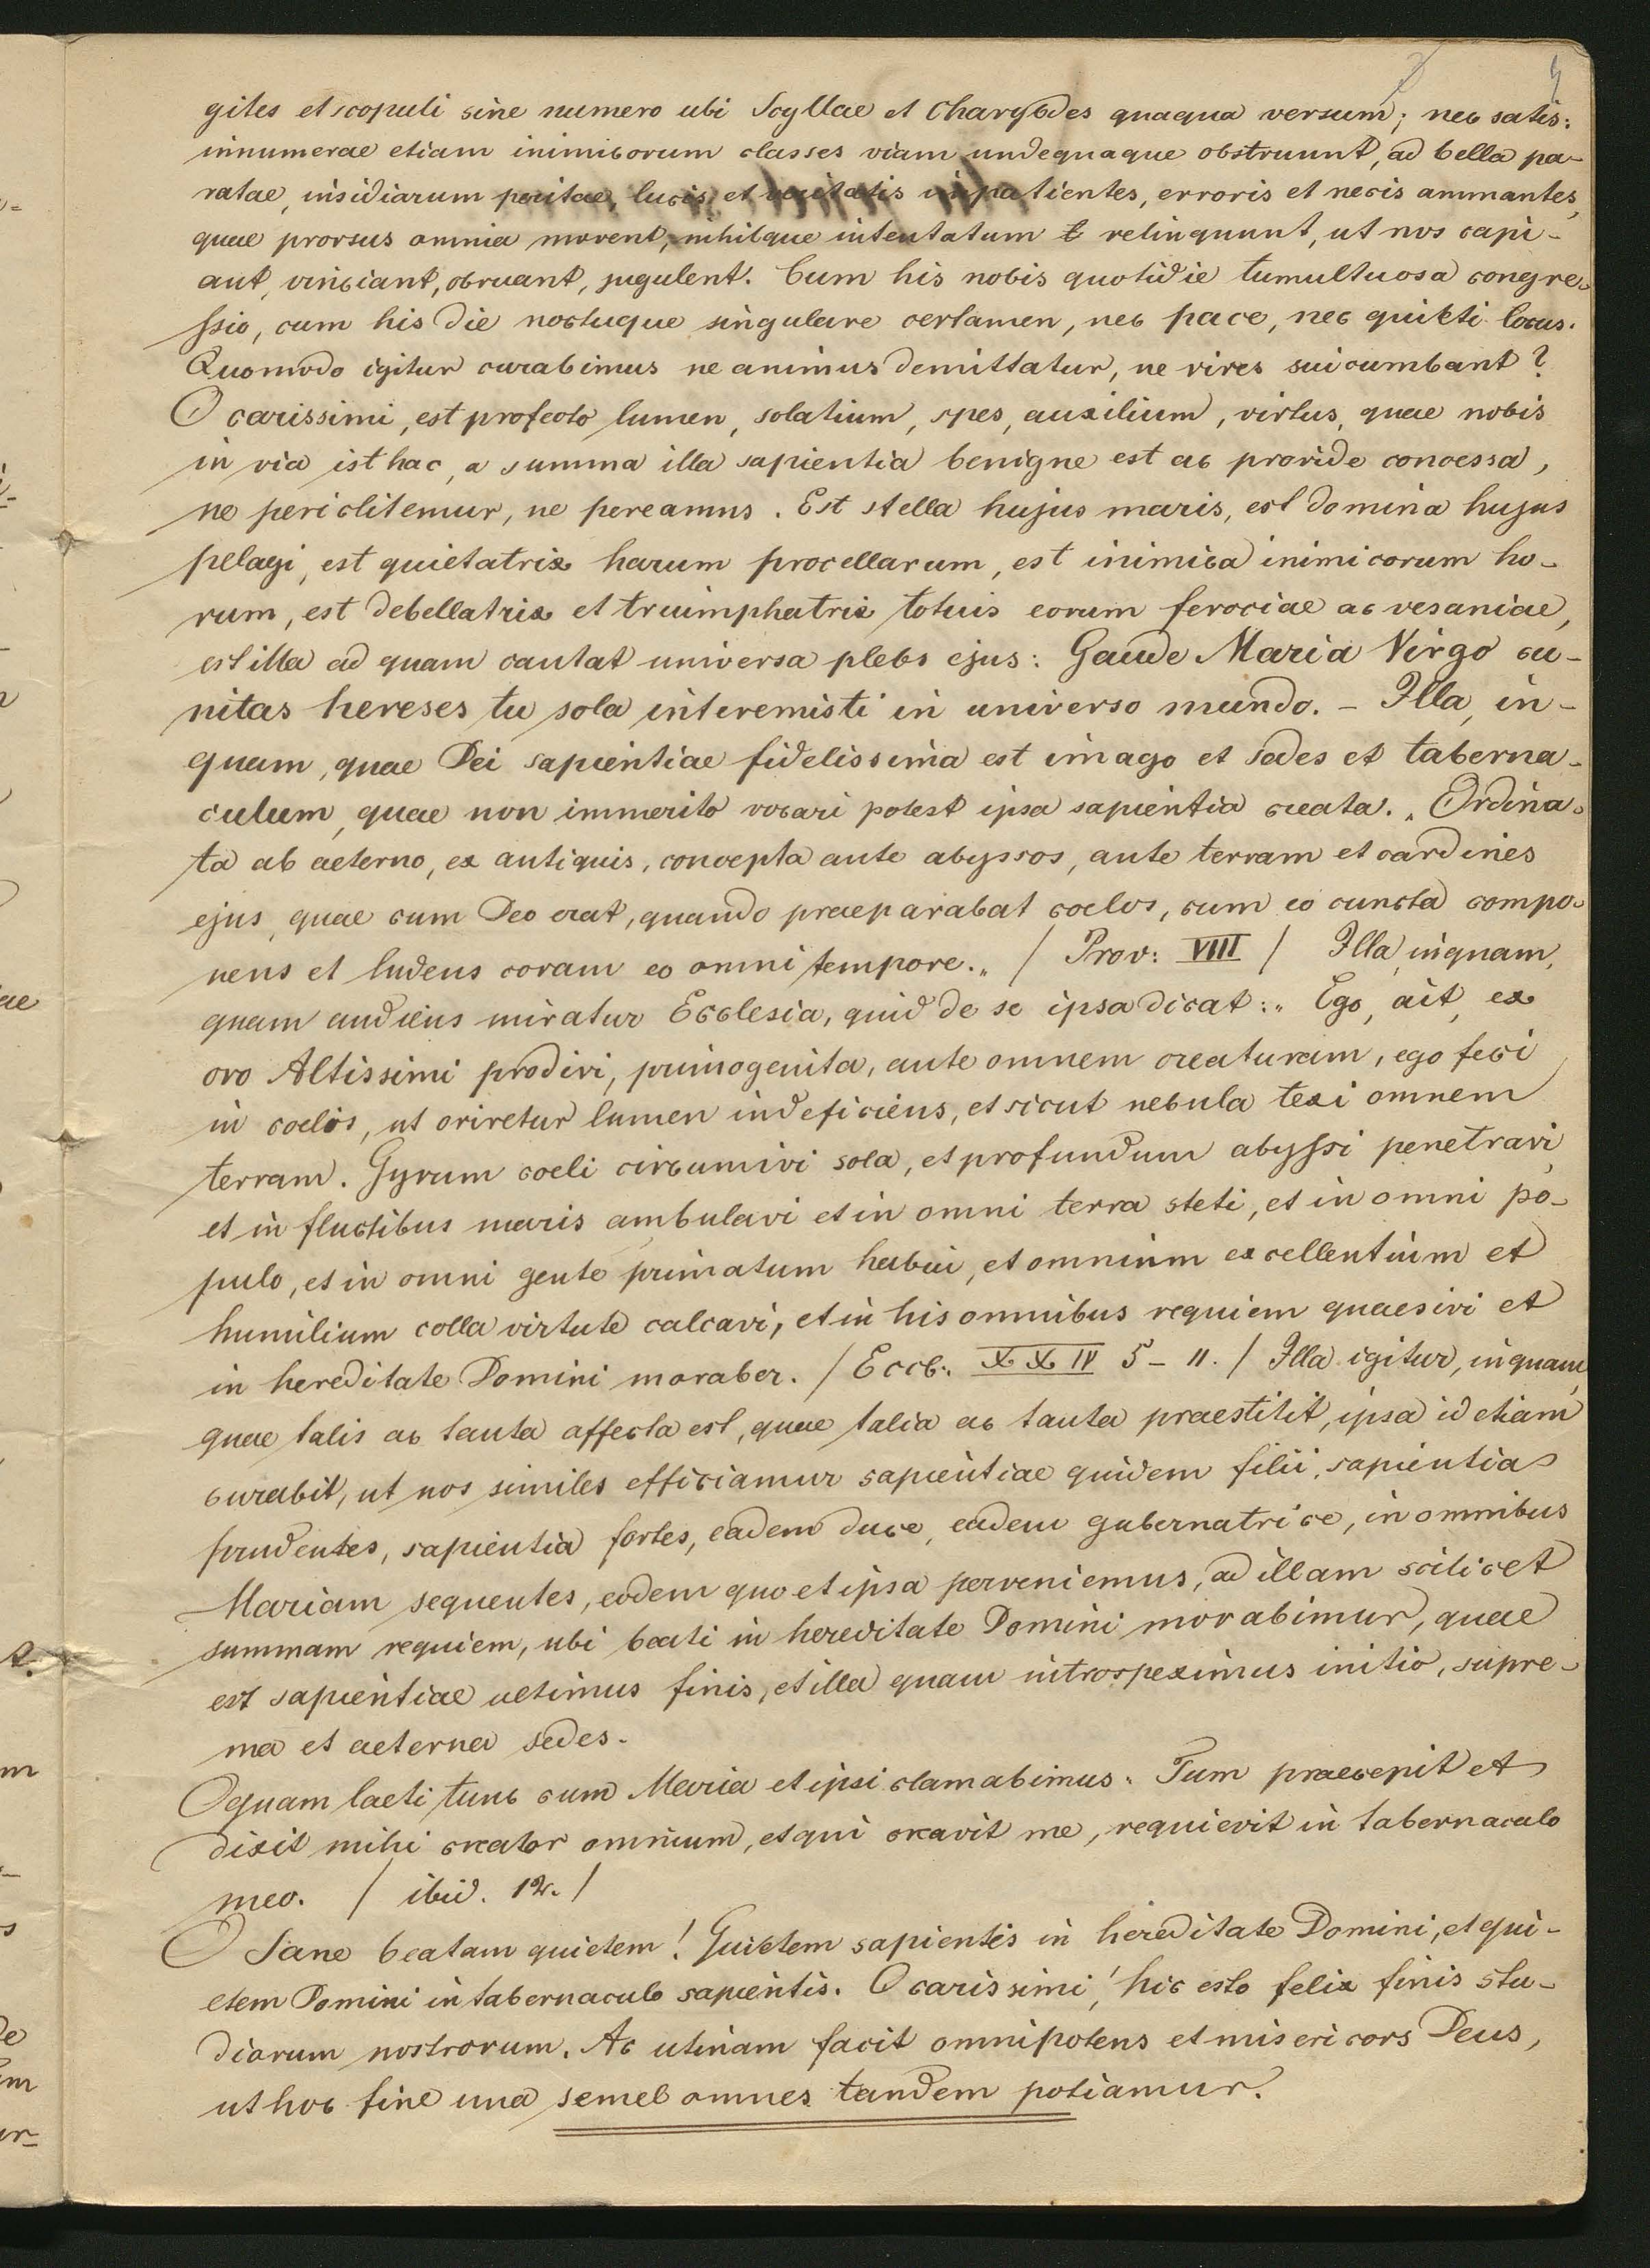 gites et scopuli sine numero ubi Scyllae et Charybdes quaqua versum; nec satis:
innumerae etiam inimicorum classes viam undequaque obstruunt, ad bella pa-
ratae, insidiarum peritae, lucis et veritatis impatientes, erroris et necis ammantes,
quae prorsus omnia movent, nihilque intentatum relinquunt, ut nos capi-
ant, vinciant, obruant, jugulent. Cum his nobis quotidie tumultuosa congre-
ssio, cum his die noctuque singulare certamen, nec pace, nec quieti locus.
Quomodo igitur curabimus ne animus demittatur, ne vires suicumbant?
O carissimi, est profecto lumen, solatium, spes, auxilium, virtus, quae nobis
in via isthac, a summa illa sapientia benigne est ac provide concessa,
ne periclitemur, ne pereamus. Est stella hujus maris, est domina hujus
pelagi, est quietatrix harum procellarum, est inimica inimicorum ho-
rum, est debellatrix et truimphatrix totuis eorum ferociae ac vesaniae,
est illa ad quam cantat universa plebs ejus: Gaude Maria Virgo cu-
nitas hereses tu sola interemisti in universo mundo. - Illa, in-
quam, quae Dei sapientiae fidelissima est imago et sedes et taberna-
culum, quae non immerito vocari potest ipsa sapientia creata. „Ordina-
ta ab aeterno, ex antiquis, concepta ante abyssos, ante terram et cardines
ejus, quae cum Deo erat, quando praeparabat coelos, cum eo cuncta compo-
nens et ludens coram eo omni tempore.„ / Prov: VIII / Illa, inquam,
quam audiens miratur Ecclesia, quid de se ipsa dicat: „Ego, ait, ex
oro Altissimi prodivi, primogenita, ante omnem creaturam, ego feci
in coelis, ut oriretur lumen indeficiens, et sicut nebula texi omnem
terram. Gyrum coeli circumivi sola, et profundum abyssi penetravi,
et in fluctibus maris ambulavi et in omni terra steti, et in omni po-
pulo, et in omni gente primatum habui, et omnium excellentium et
humilium colla virtute calcavi, et in his omnibus requiem quaesivi et
in hereditate Domini moraber. / Eccl: XXIV 5-11. / Illa igitur, inquam,
quae talis ac tanta affecta est, quae talia ac tanta praestitit, ipsa id etiam
curabit, ut nos similes efficiamur sapientiae quidem filii, sapientia
prudentes, sapientia fortes, eadem duce, eadem gubernatrice, in omnibus
Mariam sequentes, eodem quo et ipsa perveniemus, ad illam scilicet
summam requiem, ubi beati in hereditate Domini morabimur, quae
est sapientiae ultimus finis, et illa quam introspeximus initio, supre-
ma et aeterna sedes.
O quam laeti tunc cum Maria et ipsi clamabimus „Tum praecepit et
dixit mihi creator omnium, et qui creavit me, requievit in tabernaculo
meo. / ibid. 12. /
O Sane beatam quietem! Quietem sapientis in hereditate Domini, et qui-
etem Domini in tabernaculo sapientis. O carissimi, hic esto felix finis stu-
diorum nostrorum. Ac utinam facit omnipotens et misericors Deus,
ut hoc fine una semel omnes tandem potiamur.